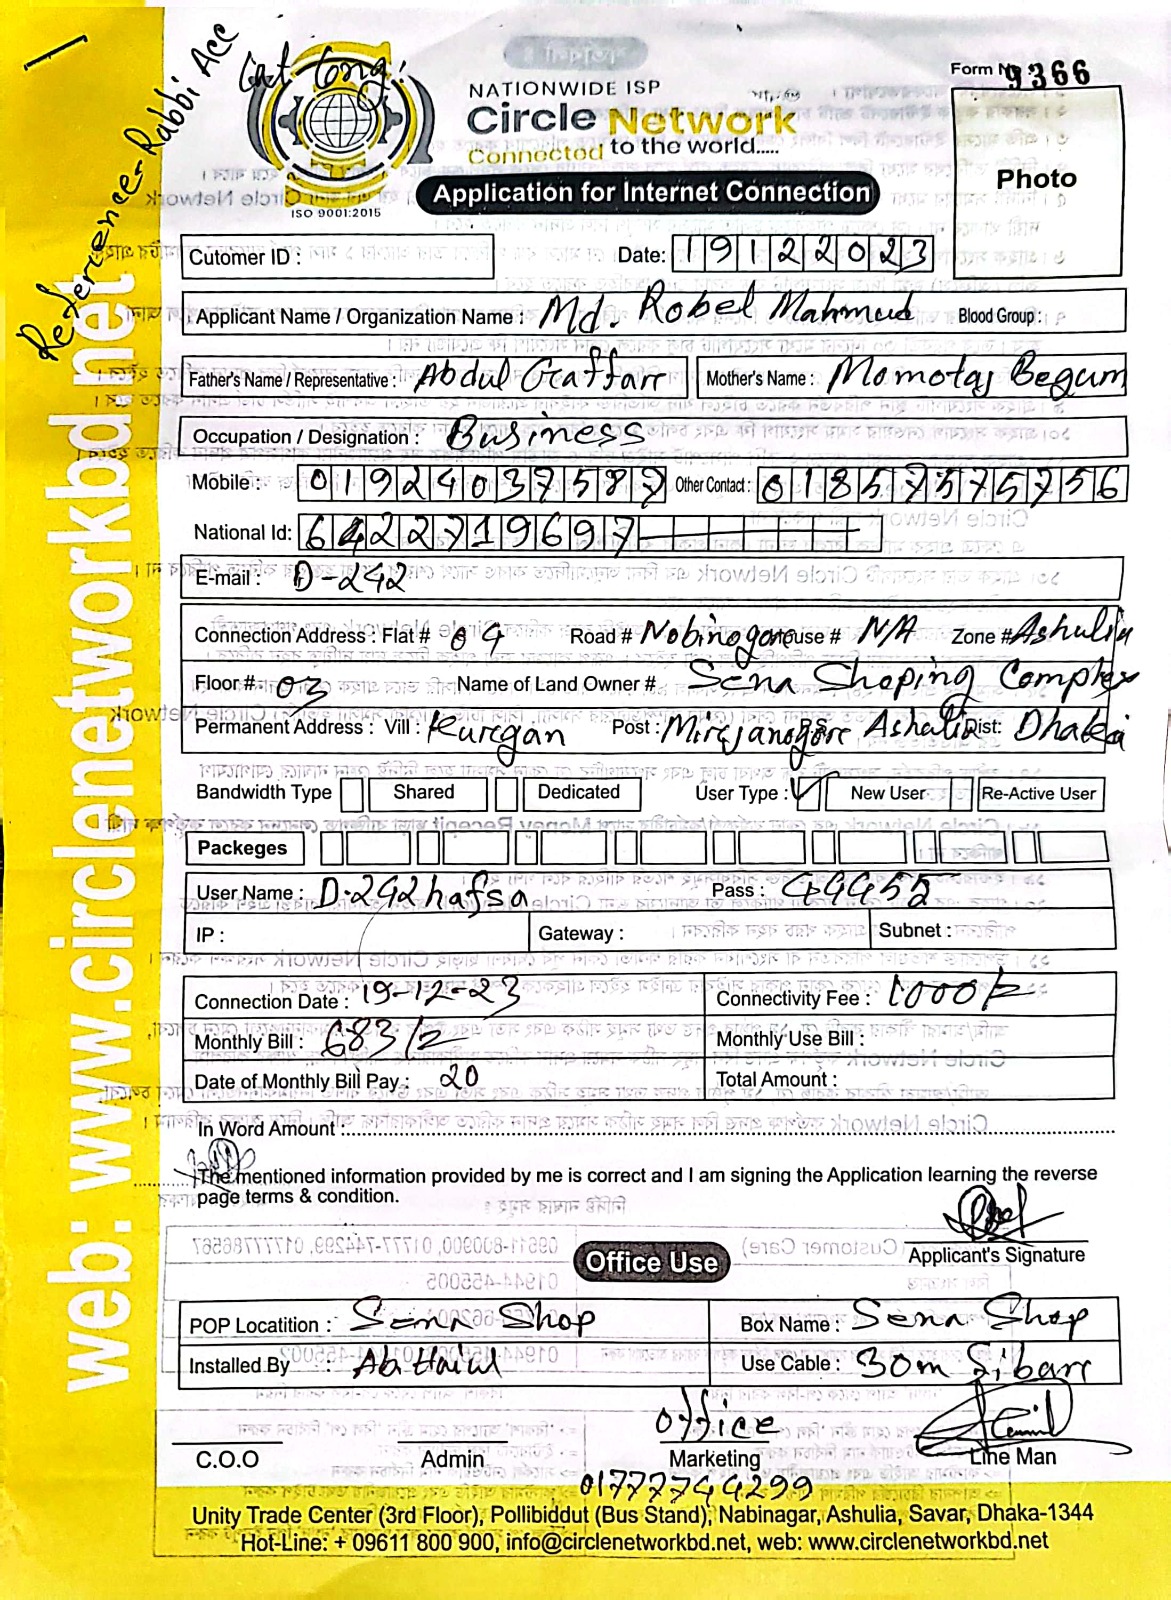 Reference-Rabbi Acc
Cat long:
NATIONWIDE ISP
Circle Network
Connected to the world.....
ISO 9001:2015
Application for Internet Connection
Form No 9366
Photo
Cutomer ID :
Date: 19122023
Applicant Name / Organization Name : Md. Robel Mahmud Blood Group :
Father's Name / Representative : Abdul Gaffar Mother's Name : Momotaj Begum
Occupation / Designation : Business
Mobile : 01924037587 Other Contact : 01857575756
National Id: 6422719697
E-mail : D-242
Connection Address : Flat # 04 Road # Nobinogore House # N/A Zone # Ashulia
Floor # 03 Name of Land Owner # Sena Shoping Complex
Permanent Address : Vill : Kurgan Post : Mirjanogore P.S Ashulia Dist: Dhaka
Bandwidth Type Shared Dedicated User Type : New User Re-Active User
Packeges
User Name : D-242hafsa Pass : 44455
IP : Gateway : Subnet :
Connection Date : 19-12-23 Connectivity Fee : 1000/=
Monthly Bill : 683/= Monthly Use Bill :
Date of Monthly Bill Pay : 20 Total Amount :
In Word Amount :
The mentioned information provided by me is correct and I am signing the Application learning the reverse
page terms & condition.
Applicant's Signature
Office Use
POP Locatition : Sena Shop Box Name : Sena Shop
Installed By : Use Cable : 30m Fibarr
office
C.O.O Admin Marketing Line Man
01777744299
Unity Trade Center (3rd Floor), Pollibiddut (Bus Stand), Nabinagar, Ashulia, Savar, Dhaka-1344
Hot-Line: + 09611 800 900, info@circlenetworkbd.net, web: www.circlenetworkbd.net
web: www.circlenetworkbd.net